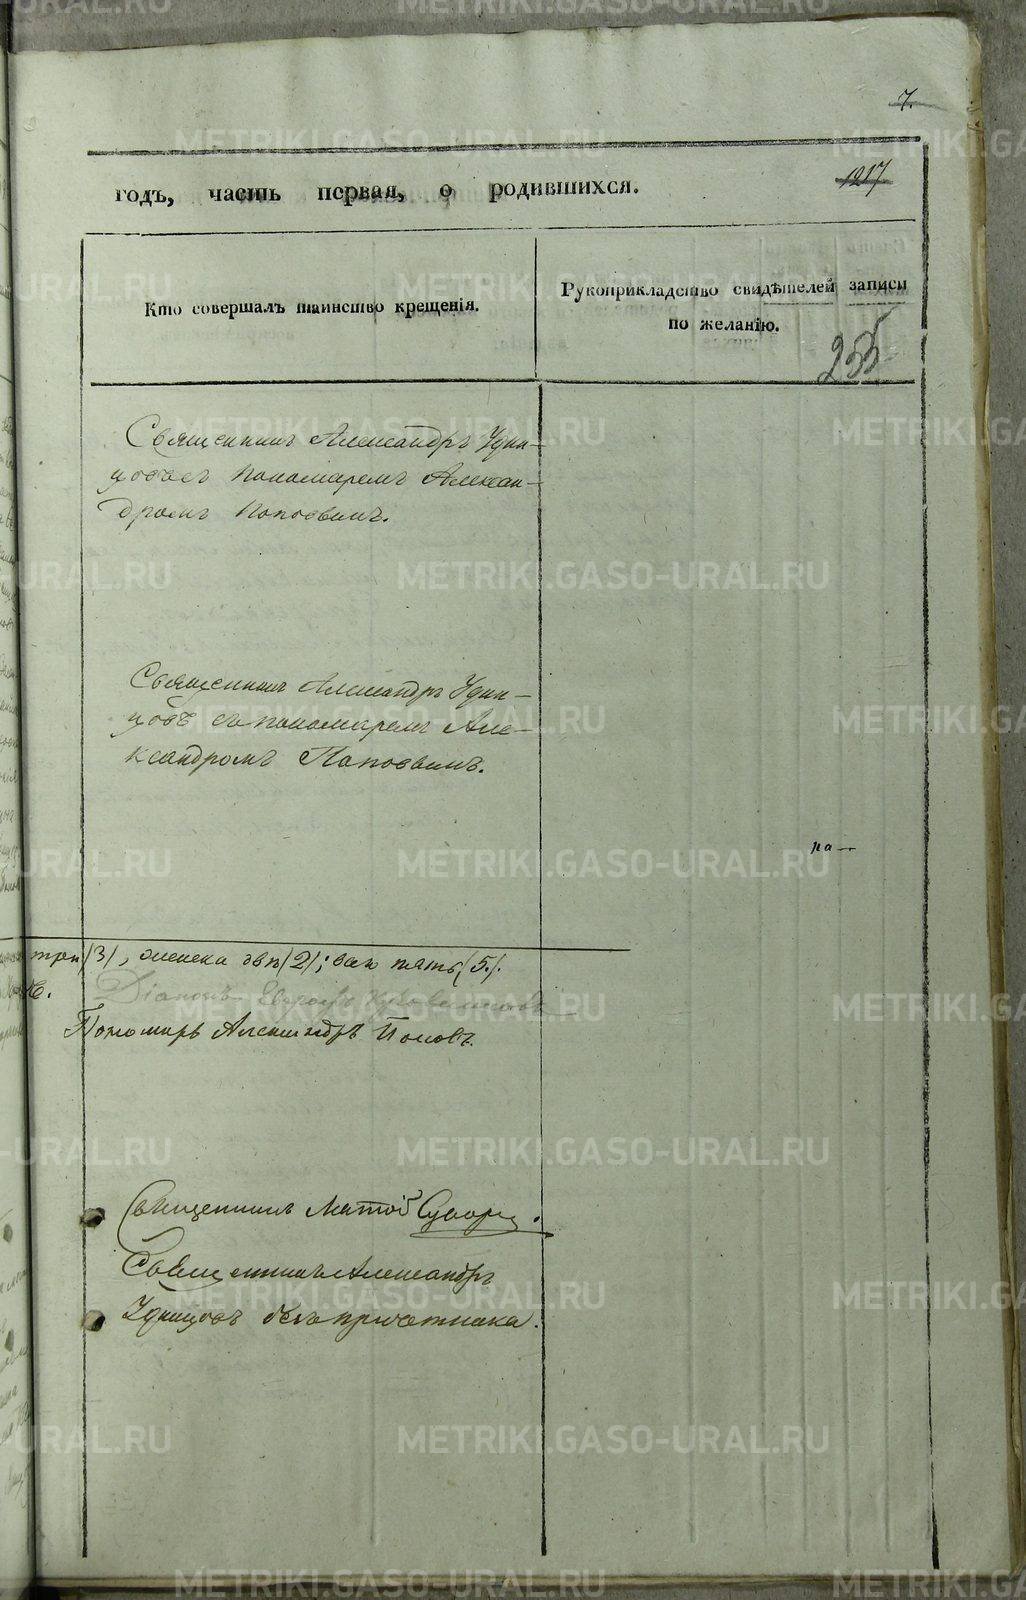 7.
годъ, часть первая, о родившихся.
1217
Кто совершалъ таинство крещенія.
Рукоприкладство свидѣтелей записи
по желанію.
255
Священникъ Александръ Удин-
цовъ съ пономаремъ Алексан-
дромъ Поповымъ.
Священникъ Александръ Удин-
цовъ съ пономаремъ Але-
ксандромъ Поповымъ.
па—
три /3/, женска двѣ /2/; всѣхъ пять /5/.
Діаконъ
Пономарь Александръ Поповъ.
Священникъ Матѳій
Священникъ Александръ
Удинцовъ безъ причетника.
METRIKI.GASO-URAL.RU